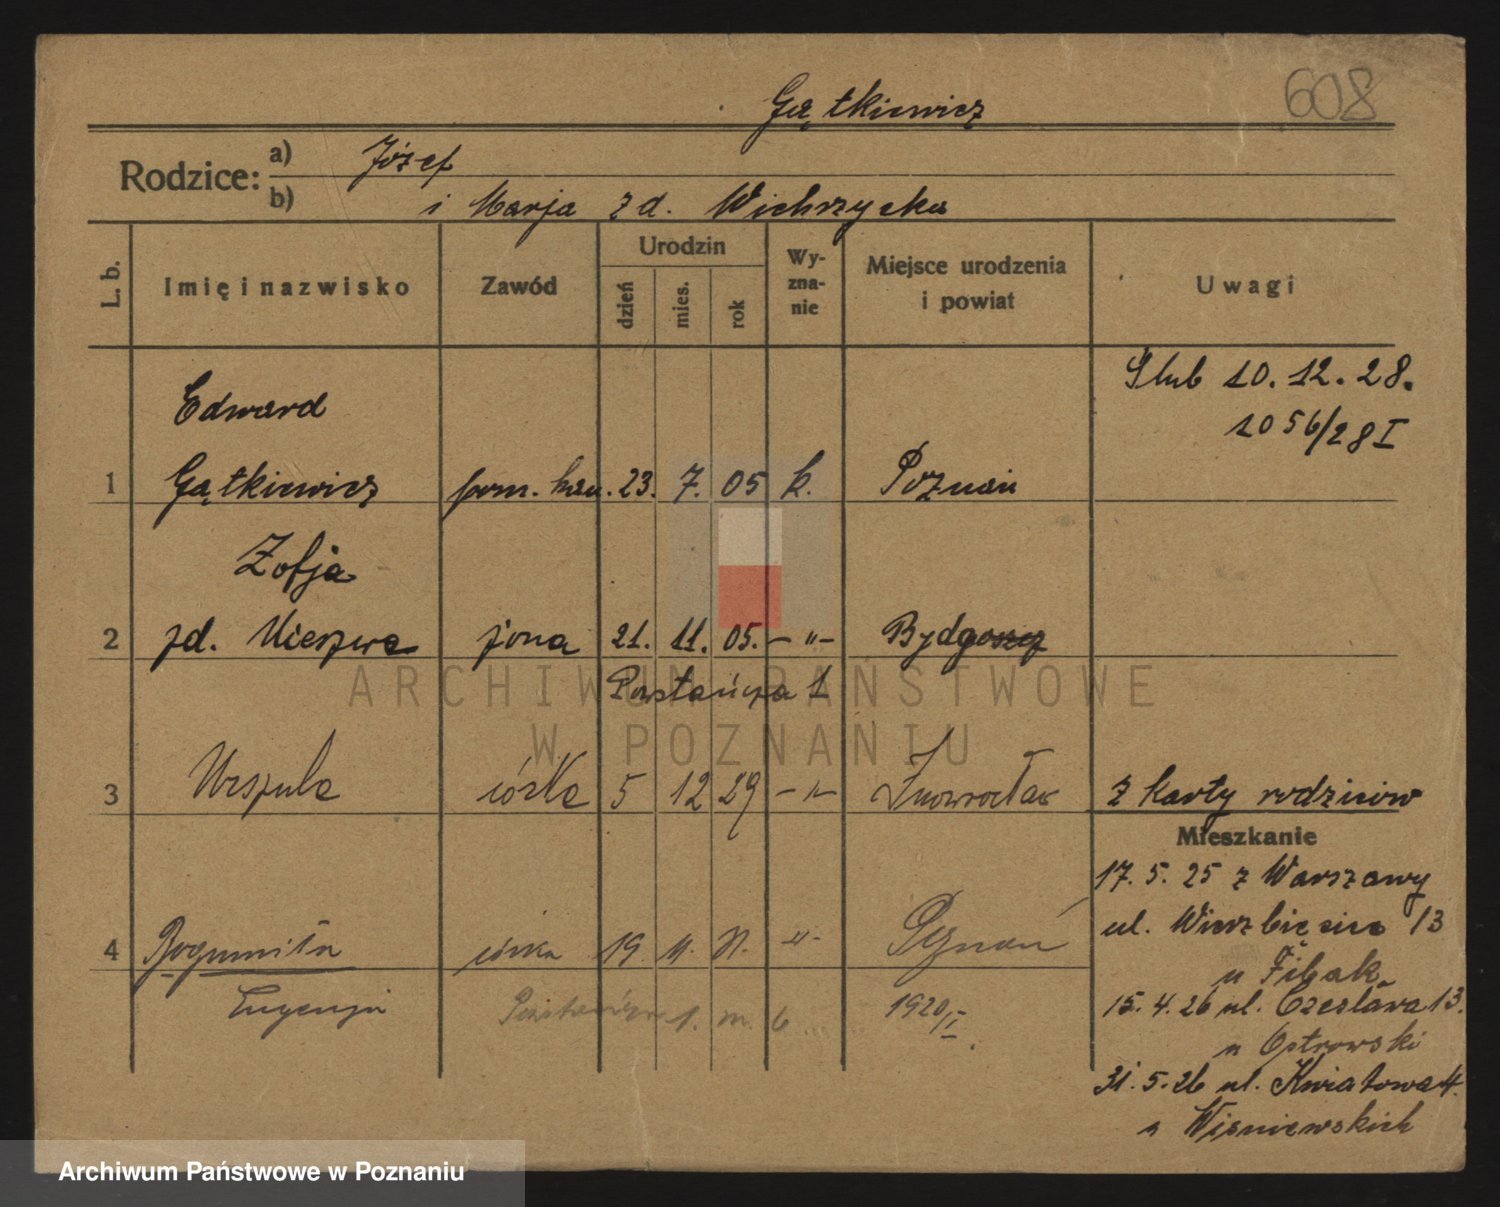 608
Gątkiewicz
Rodzice: a) Józef
b) i Marja z d. Wichrzycka
L. b. Imię i nazwisko Zawód Urodzin dzień mies. rok Wy-zna-nie Miejsce urodzenia i powiat Uwagi
Ślub 10. 12. 28.
1056/28 I
Edward
1 Gątkiewicz pom. han. 23. 7. 05 k. Poznań
Zofja
2 zd. Mierzwa żona 21. 11. 05. - " - Bydgoszcz
Powstańcza 1
3 Urszula córka 5 12 29 - " - Inowrocław z karty rodziców
Mieszkanie
17. 5. 25 z Warszawy
ul. Wierzbięcice 13
u Fibak
4 Bogumiła córka 19 11. 31. - " - Poznań
Eugenja 1. m. 6 1920/I
15. 4. 26 ul. Czesława 13.
u Ostrowski
31. 5. 26 ul. Kwiatowa 4.
u Wiśniewskich
ARCHIWUM PAŃSTWOWE
W POZNANIU
Archiwum Państwowe w Poznaniu